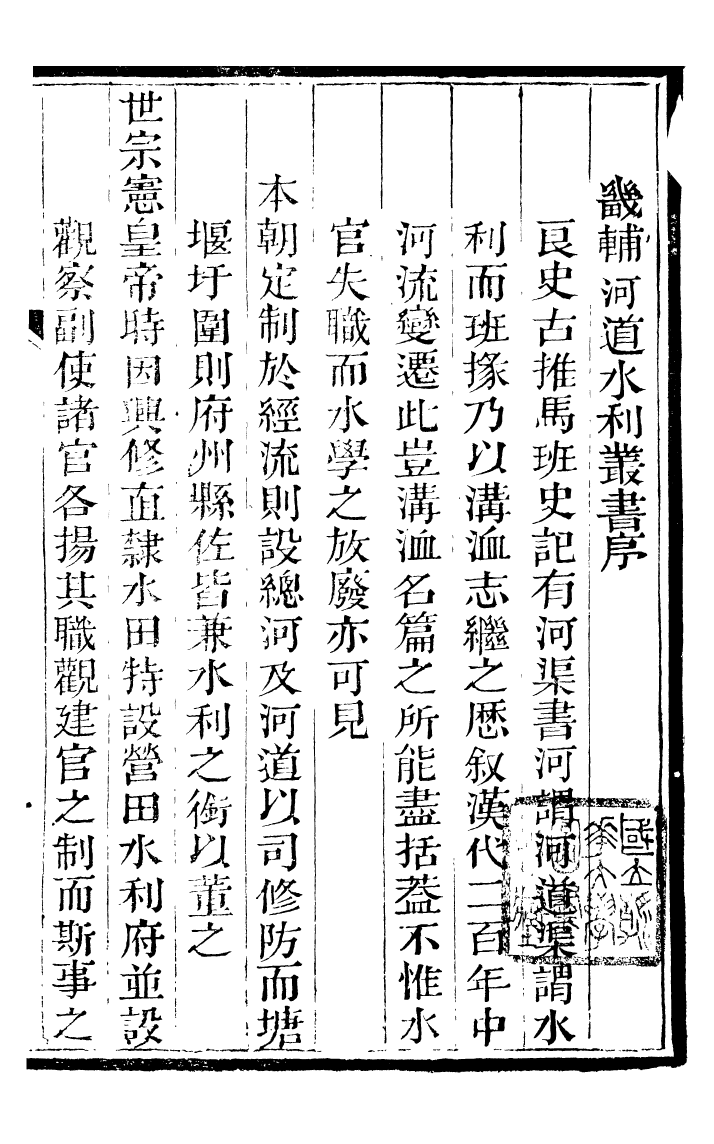 畿輔河道水利叢書序
良史古推馬班史記有河渠書河謂河道渠謂水
利而班掾乃以溝洫志繼之歷敘漢代二百年中
河流變遷此豈溝洫名篇之所能盡括葢不惟水
官失職而水學之放廢亦可見
本朝定制於經流則設總河及河道以司修防而塘
堰圩圍則府州縣佐皆兼水利之銜以董之
世宗憲皇帝時因興修直隸水田特設營田水利府並設
觀察副使諸官各揚其職觀建官之制而斯事之